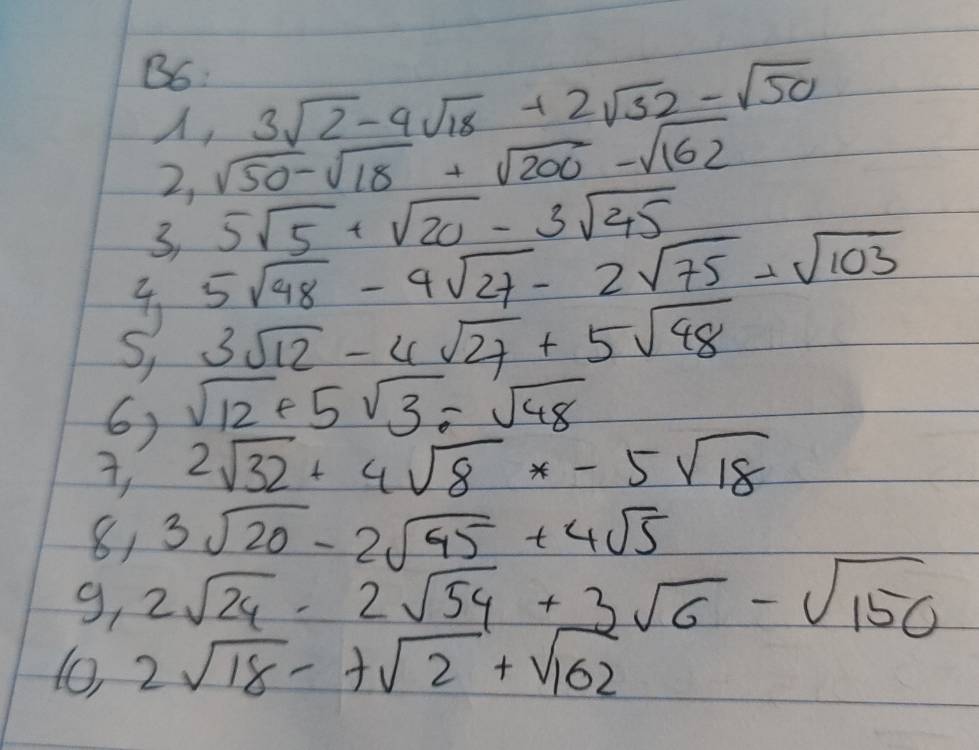 B6:
1, 3√2 - 4√18 + 2√32 - √50
2, √50 - √18 + √200 - √162
3, 5√5 + √20 - 3√45
4, 5√48 - 4√27 - 2√75 + √103
5, 3√12 - 4√27 + 5√48
6) √12 + 5√3 - √48
7, 2√32 + 4√8 * - 5√18
8, 3√20 - 2√45 + 4√5
9, 2√24 - 2√54 + 3√6 - √150
10, 2√18 - 7√2 + √162